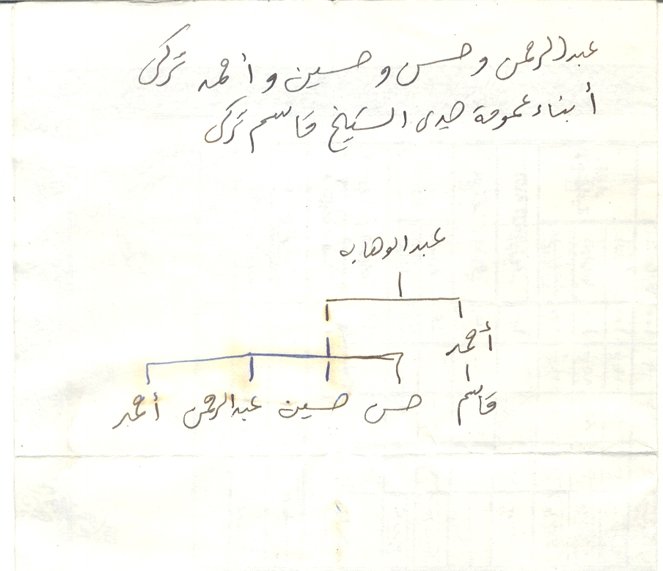 عبدالرحمن و حسن و حسين و أحمد تركى
أبناء عمومة جدى الشيخ قاسم تركى
عبدالوهاب
أحمد
قاسم حسن حسين عبدالرحمن أحمد